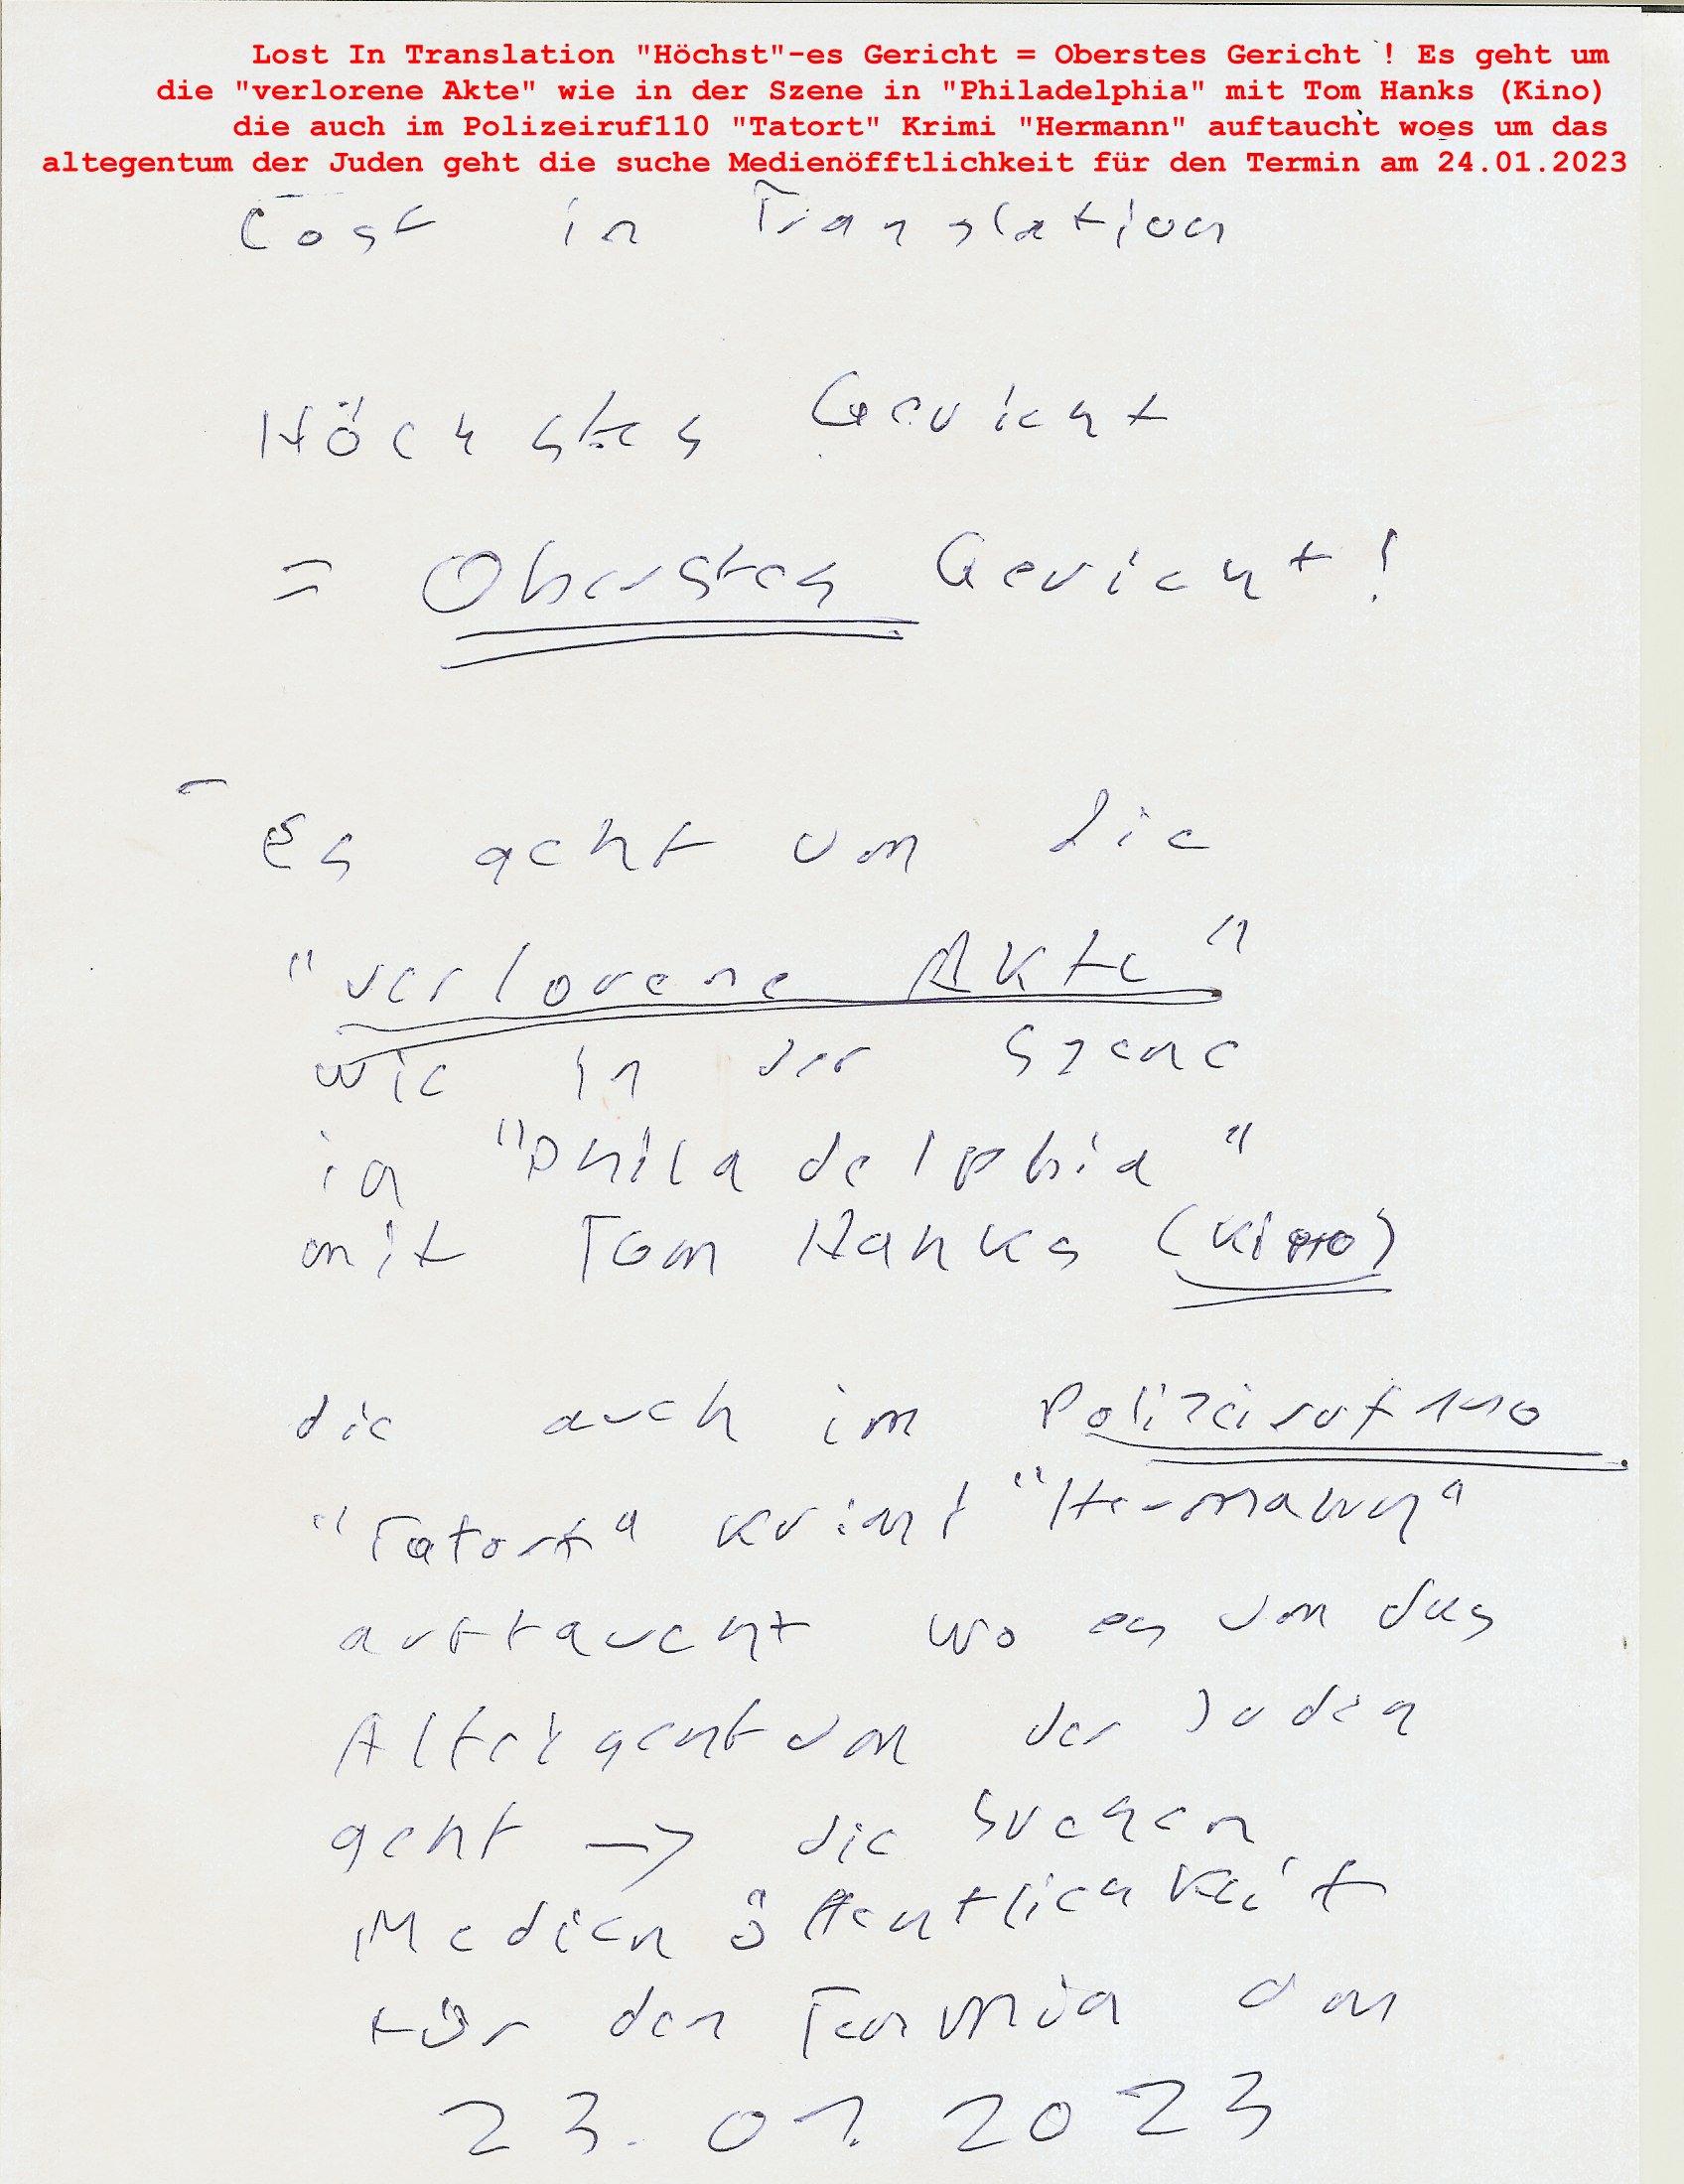 Lost In Translation "Höchst"-es Gericht = Oberstes Gericht ! Es geht um
die "verlorene Akte" wie in der Szene in "Philadelphia" mit Tom Hanks (Kino)
die auch im Polizeiruf110 "Tatort" Krimi "Hermann" auftaucht woes um das
altegentum der Juden geht die suche Medienöfftlichkeit für den Termin am 24.01.2023
Lost in Translation
Höchstes Gericht
= Oberstes Gericht!
Es geht um die
"verlorene Akte"
wie in der Szene
in "Philadelphia"
mit Tom Hanks (Kino)
die auch im Polizeiruf 110
"Tatort" Krimi "Hermann"
auftaucht wo es um das
Alteigentum der Juden
geht → die suchen
Medienöffentlichkeit
für den Termin am
23.01.2023